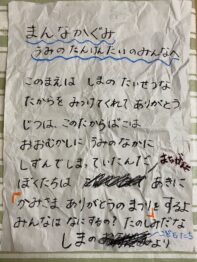 まんなかぐみ
うみのたんけんたいのみんなへ
このまえは しまの たいせつな
たからを みつけてくれて ありがとう。
じつは、このたからばこは
おおむかしに うみのなかに
しずんでしま、ていたんだ
ぼくたちは あきに
「かみさま ありがとうの まつり」を するよ
みんなは なにするの? たのしみだな
しまの より